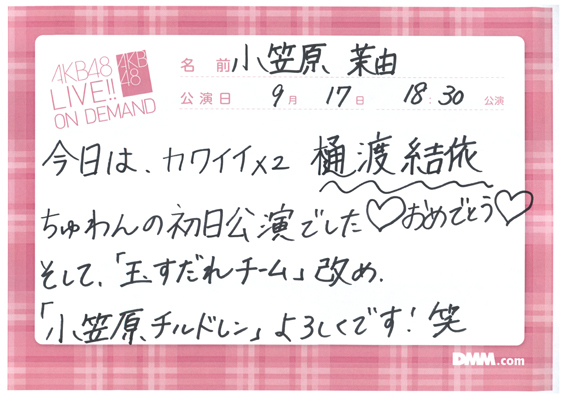 AKB48
LIVE!!
ON DEMAND
AKB
48
名前 小笠原 茉由
公演日 9月 17日 18:30 公演
今日は、カワイイ×2 樋渡結依
ちゅわんの初日公演でした♡おめでとう♡
そして、「玉すだれチーム」改め、
「小笠原チルドレン」よろしくです!笑
DMM.com